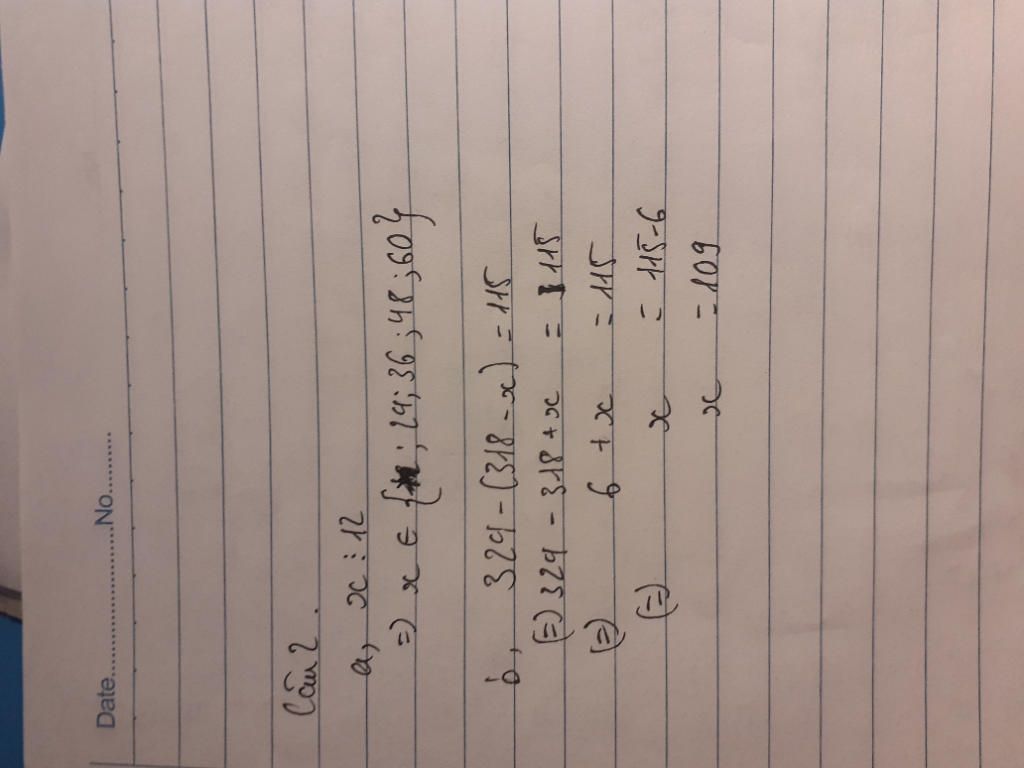 Date........................No...........
Câu 2
a, x ⋮ 12
=) x ∈ { ; 24; 36; 48; 60}
b, 324 - (318 - x) = 115
(=) 324 - 318 + x = 115
(=) 6 + x = 115
(=) x = 115-6
x = 109